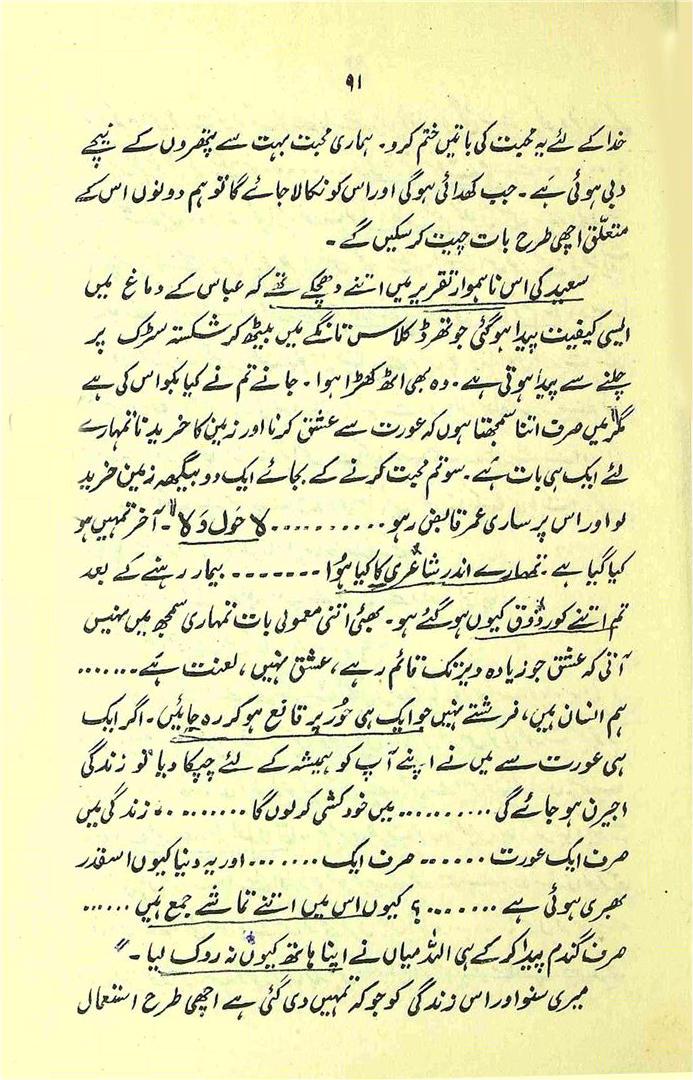 ۹۱
خدا کے لئے یہ محبت کی باتیں ختم کرو۔ ہماری محبت بہت سے پتھروں کے نیچے
دبی ہوئی ہے۔ جب کھدائی ہوگی اور اس کو نکالا جائے گا تو ہم دونوں اس کے
متعلّق اچھی طرح بات چیت کر سکیں گے۔
سعید کی اس ناہموار تقریر میں اتنے دھچکے تھے کہ عباس کے دماغ میں
ایسی کیفیت پیدا ہوگئی جو تھرڈ کلاس تانگے میں بیٹھ کر شکستہ سڑک پر
چلنے سے پیدا ہوتی ہے۔ وہ بھی اٹھ کھڑا ہوا۔ جانے تم نے کیا بکواس کی ہے
مگر میں صرف اتنا سمجھتا ہوں کہ عورت سے عشق کرنا اور زمین کا خریدنا تمہارے
لئے ایک ہی بات ہے۔ سو تم محبت کرنے کے بجائے ایک دو بیگھہ زمین خرید
لو اور اس پر ساری عمر قابض رہو .......... لا حَول وَلا"۔ آخر تمہیں ہو
کیا گیا ہے۔ تمہارے اندر شاعری کا کیا ہُوا ....... بیمار رہنے کے بعد
تم اتنے کور ذوق کیوں ہوگئے ہو۔ بھئی اتنی معمولی بات تمہاری سمجھ میں نہیں
آتی کہ عشق جو زیادہ دیر تک قائم رہے، عشق نہیں، لعنت ہے.......
ہم انسان ہیں، فرشتے نہیں جو ایک ہی حُور پر قانع ہو کر رہ جائیں۔ اگر ایک
ہی عورت سے میں نے اپنے آپ کو ہمیشہ کے لئے چپکا دیا تو زندگی
اجیرن ہو جائے گی .......... میں خودکشی کر لوں گا ......... زندگی میں
صرف ایک عورت ...... صرف ایک ....... اور یہ دنیا کیوں اسقدر
بھری ہوئی ہے .......؟ کیوں اس میں اتنے تماشے جمع ہیں ......
صرف گندم پیدا کر کے ہی اللہ میاں نے اپنا ہاتھ کیوں نہ روک لیا۔"
میری سنو اور اس زندگی کو جو کہ تمہیں دی گئی ہے اچھی طرح استعمال